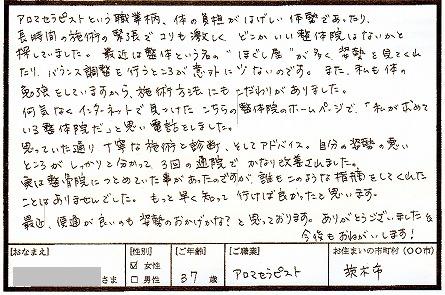 アロマセラピストという職業柄、体の負担がはげしい体勢であったり、
長時間の施術の緊張でコリも激しく、どこかいい整体院はないかと
探していました。最近は整体という名の"ほぐし屋"が多く、姿勢を見てくれ
たり、バランス調整を行うところが意外に少ないのです。また、私も体の
勉強をしていますから、施術方法にもこだわりがありました。
何気なくインターネットで見つけたこちらの整体院のホームページで、「私が求めて
いる整体院だ」と思い電話をしました。
思っていた通り丁寧な施術と診断、そしてアドバイス。自分の姿勢の悪い
ところがしっかりと分かって3回の通院でかなり改善されました。
実は整骨院につとめていた事があったのですが、誰もこのような指摘をしてくれた
ことはありませんでした。もっと早く知って行けば良かったと思います。
最近、便通が良いのも姿勢のおかげかな?と思っております。ありがとうございました
今後もおねがいします!
【おなまえ】 【性別】 【ご年齢】 【ご職業】 お住まいの市町村（○○市）
さま ☑ 女性 □ 男性 37 歳 アロマセラピスト 茨木市